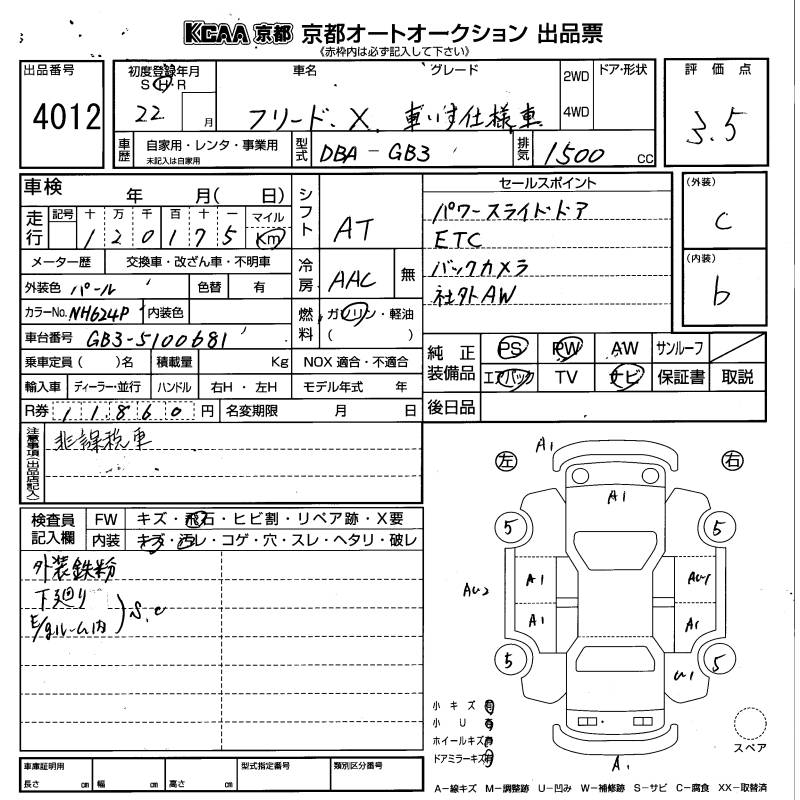 KCAA 京都 京都オートオークション 出品票
《赤枠内は必ず記入して下さい》
出品番号
4012
初度登録年月
S H R
22 月
車名 グレード
フリード X 車いす仕様車
2WD
4WD
ドア・形状
評価点
3.5
車歴
自家用・レンタ・事業用
未記入は自家用
型式
DBA-GB3
排気
1500 CC
車検 年 月( 日)
走行
記号 十 万 千 百 十 一 マイル
1 2 0 1 7 5 Km
メーター歴 交換車・改ざん車・不明車
外装色 パール 色替 有
カラーNo. NH624P 内装色
車台番号 GB3-5100681
乗車定員( )名 積載量 Kg
輸入車 ディーラー・並行 ハンドル 右H・左H
R券 11860 円 名変期限 月 日
シフト
AT
冷房
AAC 無
燃料
ガソリン・軽油
( )
NOX 適合・不適合
モデル年式 年
セールスポイント
パワースライドドア
ETC
バックカメラ
社外AW
(外装)
C
(内装)
b
純正装備品
PS PW AW サンルーフ
エアバック TV ナビ 保証書 取説
後日品
注意事項(出品店記入)
非課税車
検査員記入欄
FW キズ・飛石・ヒビ割・リペア跡・X要
内装 キズ・汚レ・コゲ・穴・スレ・ヘタリ・破レ
外装鉄粉
下廻り
E/gルーム内 S.C
左 右
A1
A1
5 5
AU2 A1 AU1
A1 A1
5 U1 5
A1
小キズ有
小U有
ホイールキズ有
ドアミラーキズ有
スペア
A-線キズ M-調整跡 U-凹み W-補修跡 S-サビ C-腐食 XX-取替済
車庫証明用
長さ cm 幅 cm 高さ cm
型式指定番号
類別区分番号